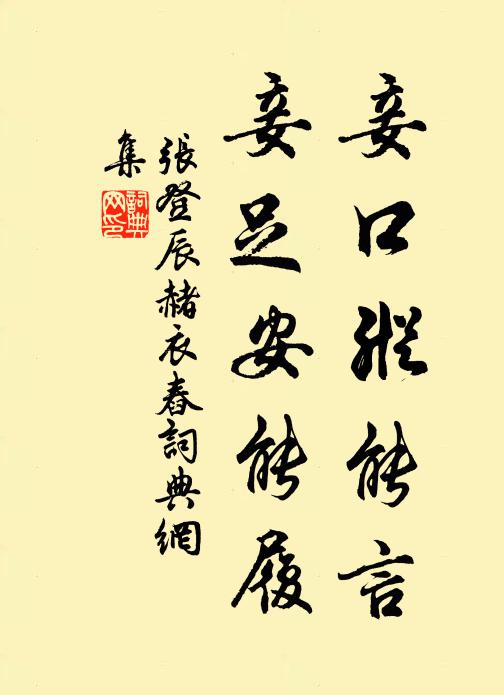 妾口縱能言
妾足安能履
張登辰赭衣舂詞典網
集
詞典網印